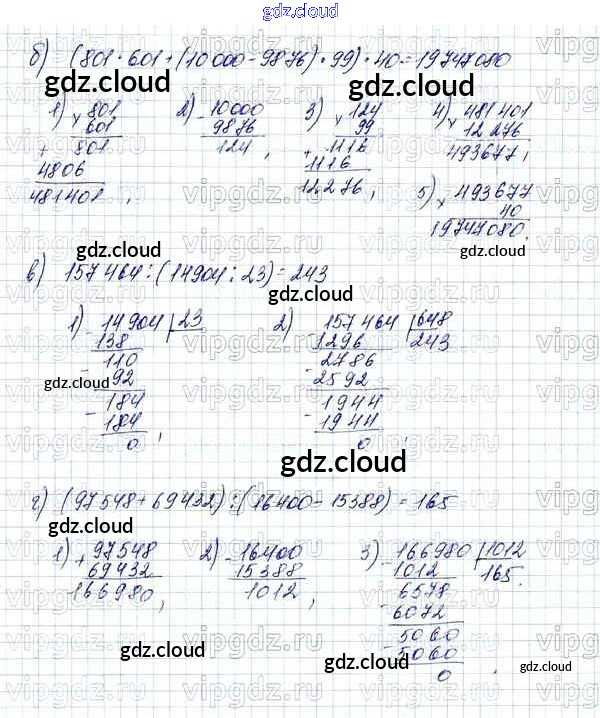 gdz.cloud
б) (801 · 601 + (10 000 - 9876) · 99) · 40 = 19747080
1) × 801  2) - 10000  3) × 124  4) × 481 401
601  9876  99  12 276
+ 801  124,  + 1116  493677,
4806  1116  5) × 493677
481401,  12276,  40
19747080.
в) 157 464 : (14904 : 23) = 243
1) - 14904 | 23  2) - 157 464 | 648
138  1296  243
- 110  - 2786
92  2592
- 184  - 1944
184  1944
0,  0,
г) (97548 + 69432) : (16400 - 15388) = 165
1) + 97548  2) - 16400  3) - 166980 | 1012
69432  15388  1012  165.
166980,  1012,  - 6578
6072
- 5060
5060
0.
gdz.cloud
gdz.cloud
gdz.cloud
gdz.cloud
gdz.cloud
gdz.cloud
gdz.cloud
gdz.cloud
gdz.cloud
gdz.cloud
gdz.cloud
gdz.cloud
gdz.cloud